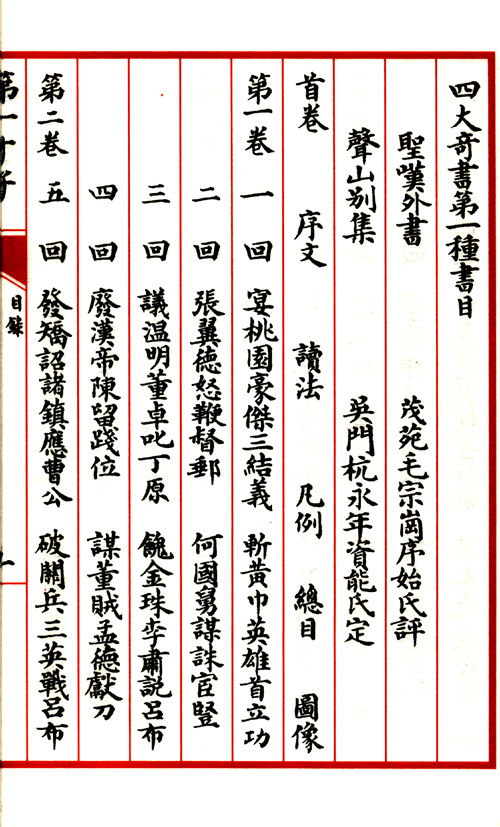 四大奇書第一種書目
聖嘆外書　茂苑毛宗崗序始氏評
聲山別集　吳門杭永年資能氏定
首卷　序文　讀法　凡例　總目　圖像
第一卷　一回　宴桃園豪傑三結義　斬黃巾英雄首立功
二回　張翼德怒鞭督郵　何國舅謀誅宦豎
三回　議溫明董卓叱丁原　餽金珠李肅說呂布
四回　廢漢帝陳留踐位　謀董賊孟德獻刀
第二卷　五回　發矯詔諸鎮應曹公　破關兵三英戰呂布
目錄